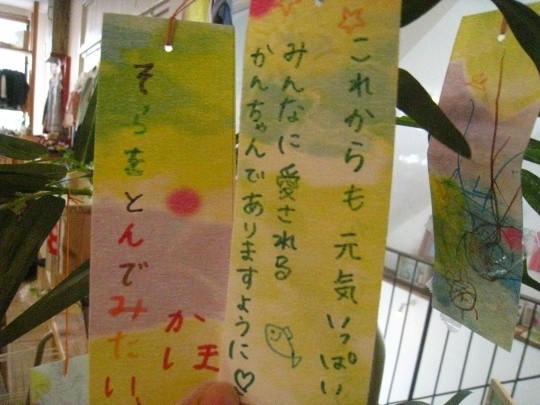 これからも元気いっぱい
みんなに愛される
かんちゃんでありますように♡
そらをとんでみたい